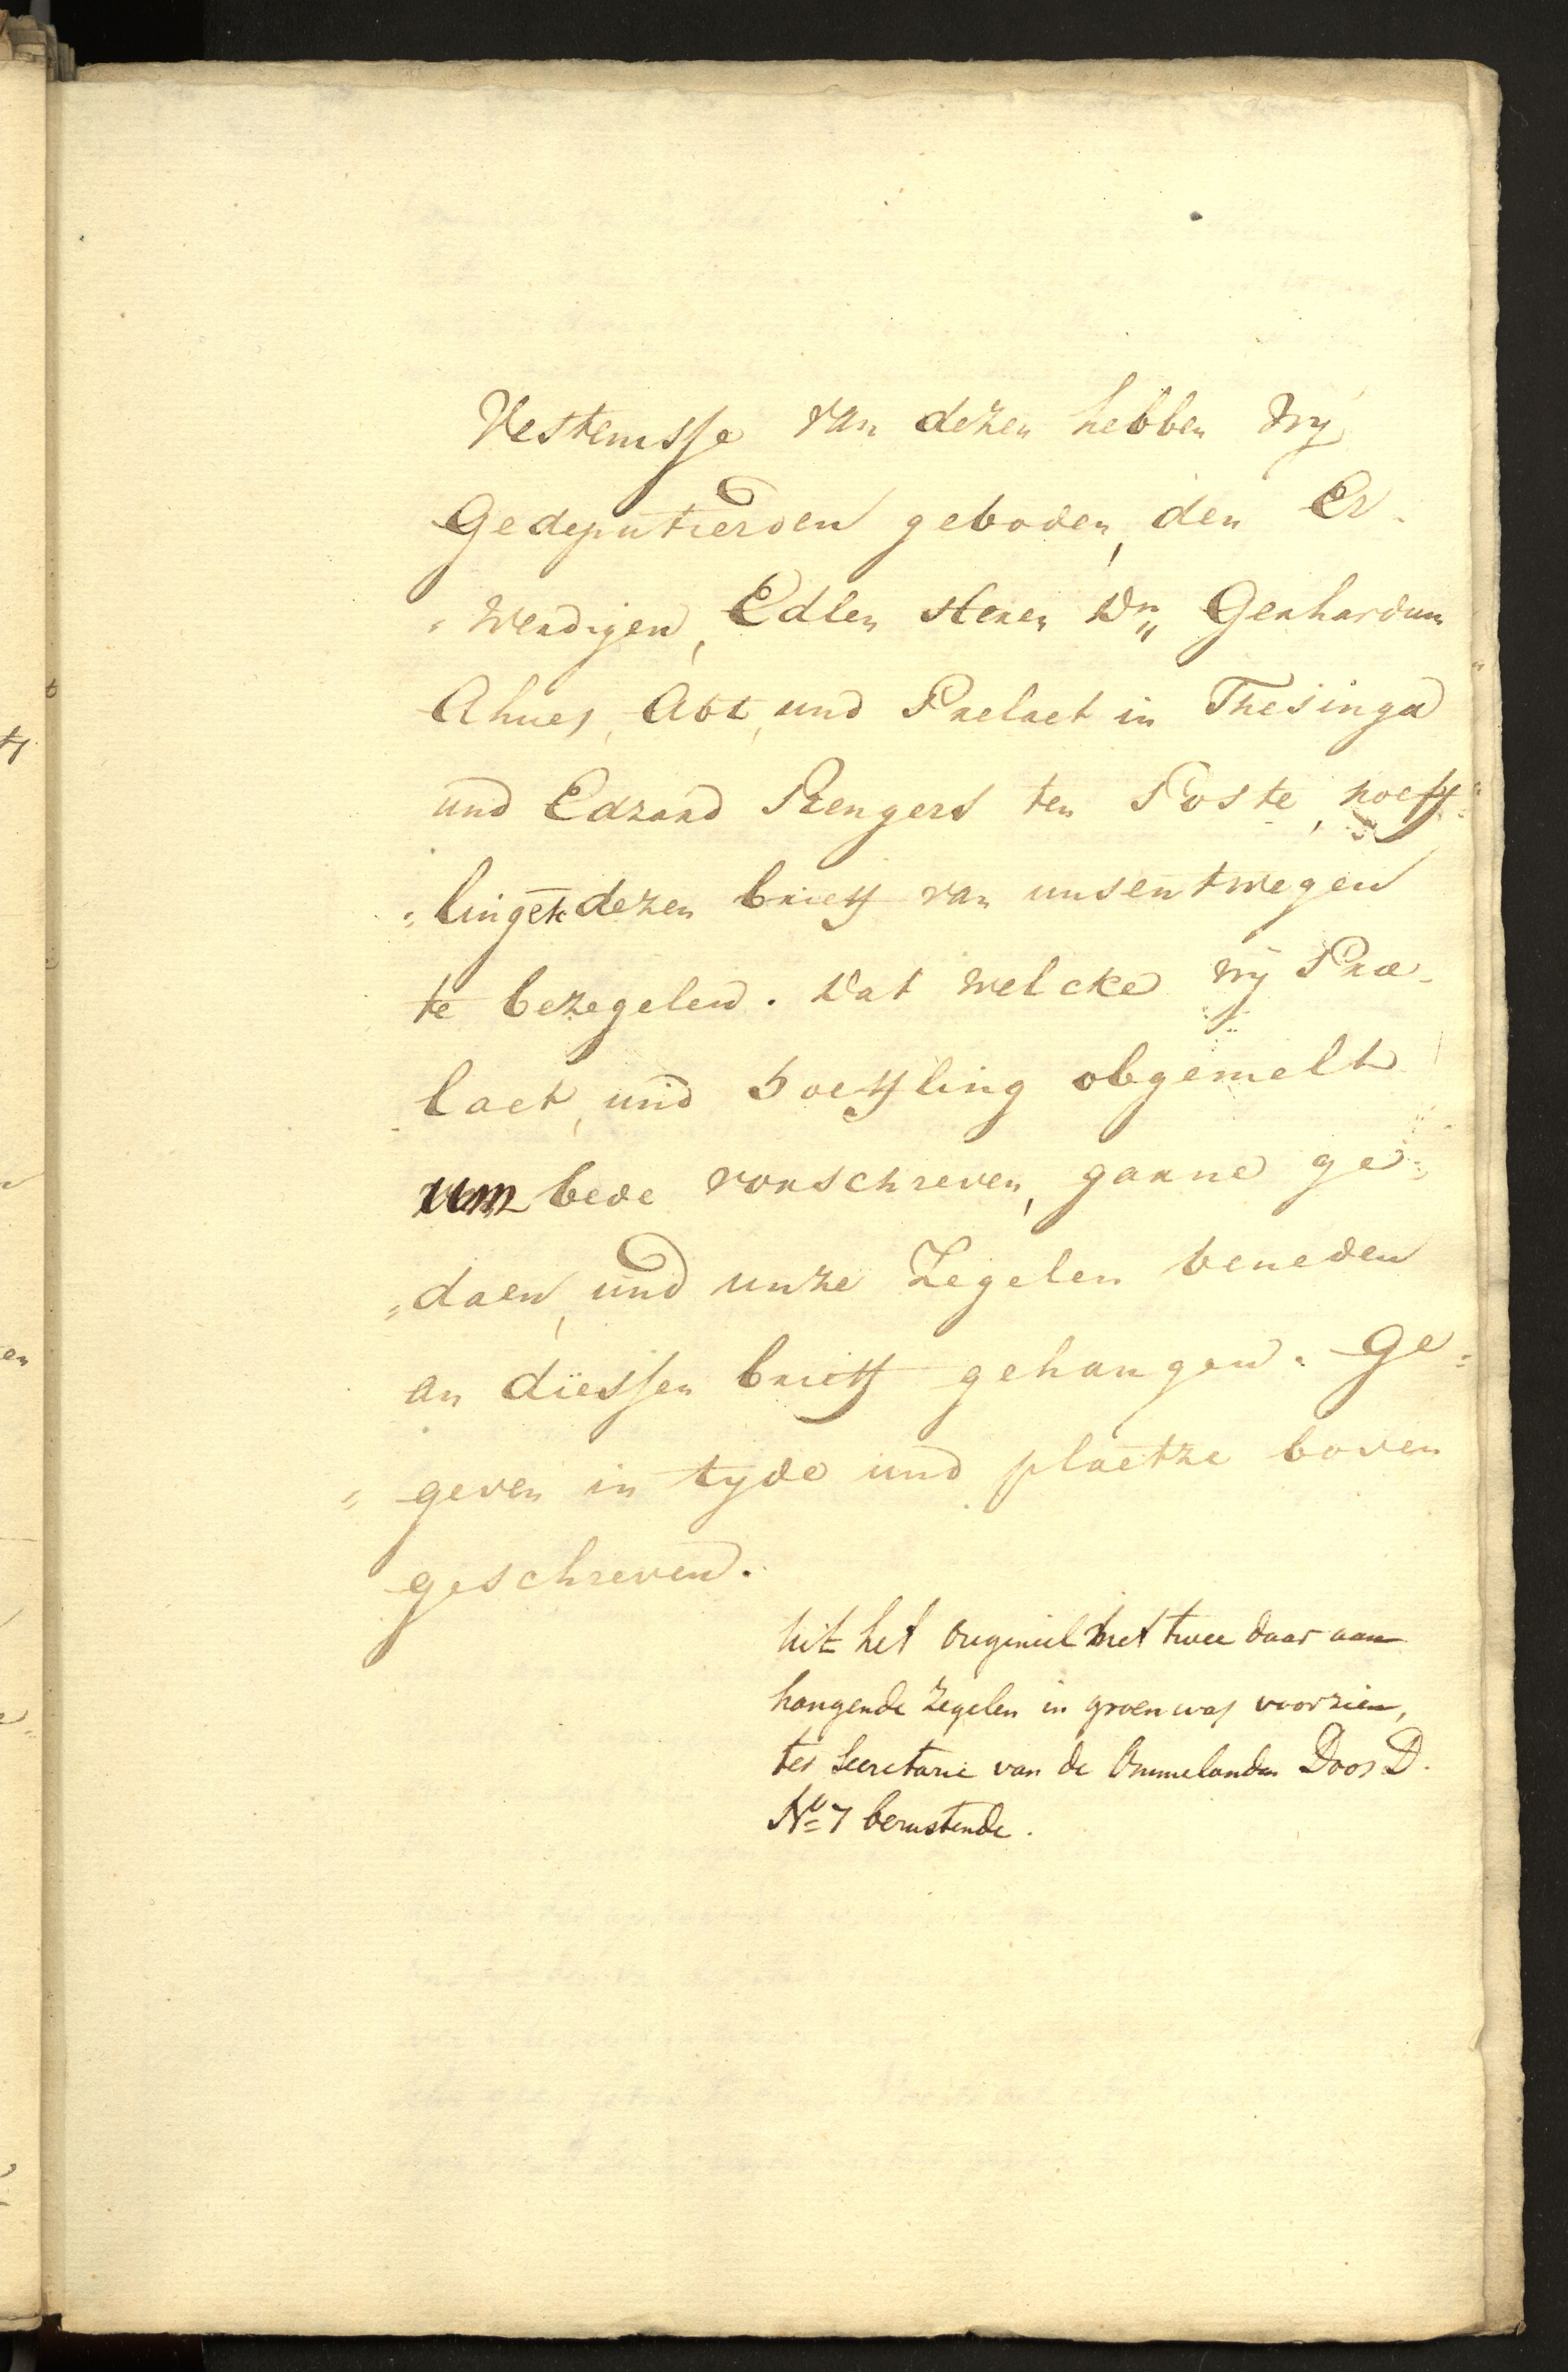 Vestenisse van dezen hebben wy
Gedeputierden geboden, den Er-
"werdigen, Edlen Heren Dn. Gerhardum
Ahues, Abt, und Praelaet in Thesinga
und Edzard Rengers ten Poste, hoeff-
"lingek dezen brieff van unsentwegen
te bezegelen. Dat welcke wy Prae-
laet, und Hoeffling obgemelt
um bede vorschreven, garne ge-
"daen, und unze Zegelen beneden
an diessen brieff gehangen. Ge=
"geven in tyde und plaetze boven
geschreven.
Uit het origineel met twee daar aan
hangende zegelen in groen was voorzien,
ter Secretarie van de Ommelanden Doos D.
No 7 berustende.